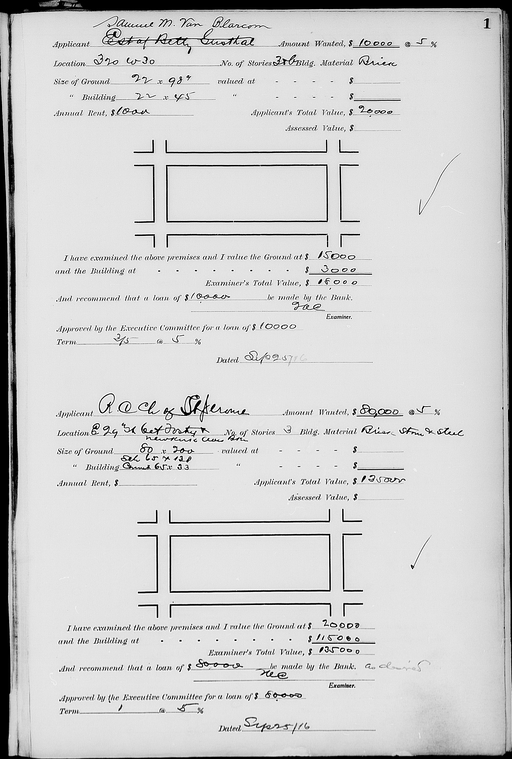 1
Samuel M. Van Blarcom
Applicant Est of Betty Gunthal Amount Wanted, $ 10000 @ 5 %
Location 320 W 30 No. of Stories 3 & B Bldg. Material Brick
Size of Ground 22 x 98⁹ valued at - - - - $
" Building 22 x 45 " - - - - $
Annual Rent, $ 1000 Applicant's Total Value, $ 20,000
Assessed Value, $
I have examined the above premises and I value the Ground at $ 15000
and the Building at - - - - - - - - $ 3000
Examiner's Total Value, $ 18,000
And recommend that a loan of $ 10,000 be made by the Bank.
Examiner.
Approved by the Executive Committee for a loan of $ 10000
Term 3/5 @ 5 %
Dated Sep 25/16
Applicant R C Ch of St Jerome Amount Wanted, $ 80,000 @ 5 %
Location E 29 St bet Foster & No. of Stories 3 Bldg. Material Brick Stone & Steel
Newkirk Aves Bkn
Size of Ground 80 x 200 valued at - - - - $
Sch 65 x 128
" Building 65 x 33 " - - - - $
Annual Rent, $ Applicant's Total Value, $ 135000
Assessed Value, $
I have examined the above premises and I value the Ground at $ 20000
and the Building at - - - - - - - - $ 115000
Examiner's Total Value, $ 135000
And recommend that a loan of $ 80000 be made by the Bank.
Examiner.
Approved by the Executive Committee for a loan of $ 80000
Term 1 @ 5 %
Dated Sep 25/16